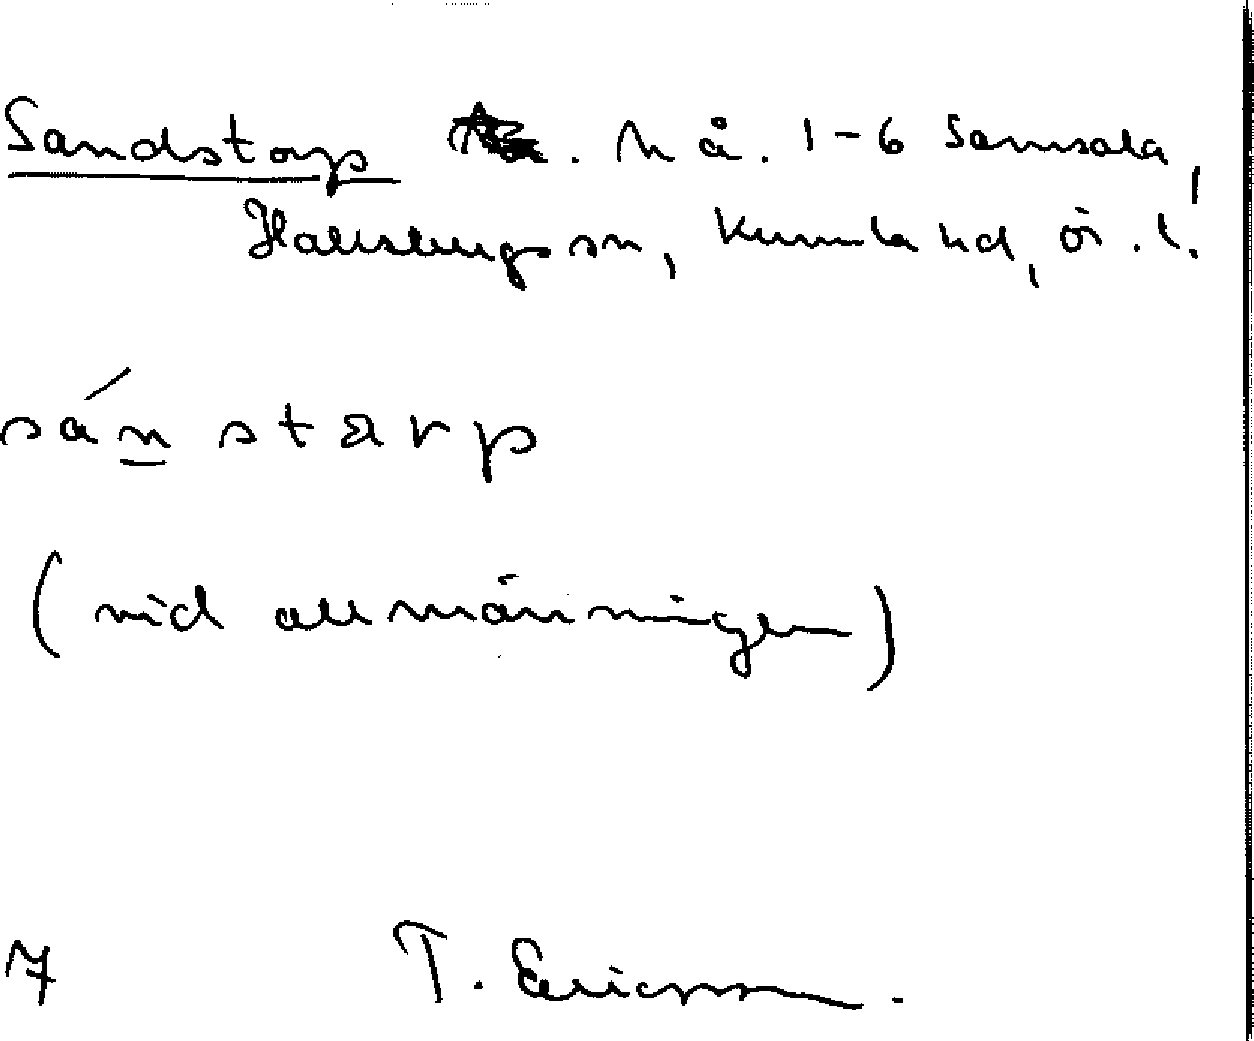 Sandstorp . h å. 1-6 Samsala,
Hallsbergs sn, Kumla hd, ör. l.
sánstarp
(vid allmänningen)
7 T. Ericsson.